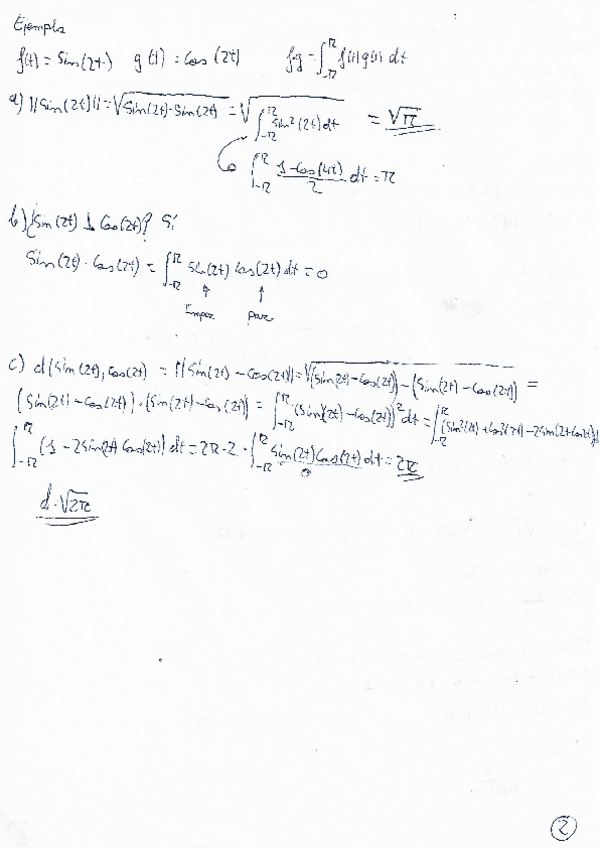 Ejemplo
f(t) = Sin(2t) g(t) = Cos(2t) f·g = ∫_{-π}^{π} f(t)g(t) dt
a) ||Sin(2t)|| = √(Sin(2t)·Sin(2t)) = √(∫_{-π}^{π} Sin²(2t) dt) = √π
∫_{-π}^{π} (1 - Cos(4t))/2 dt = π
b) ¿Sin(2t) ⊥ Cos(2t)? Sí
Sin(2t) · Cos(2t) = ∫_{-π}^{π} Sin(2t) Cos(2t) dt = 0
↑ ↑
Impar Par
c) d(Sin(2t), Cos(2t)) = ||Sin(2t) - Cos(2t)|| = √((Sin(2t) - Cos(2t)) · (Sin(2t) - Cos(2t))) =
(Sin(2t) - Cos(2t)) · (Sin(2t) - Cos(2t)) = ∫_{-π}^{π} (Sin(2t) - Cos(2t))² dt = ∫_{-π}^{π} (Sin²(2t) + Cos²(2t) - 2Sin(2t)Cos(2t)) dt
∫_{-π}^{π} (1 - 2Sin(2t) Cos(2t)) dt = 2π - 2 · ∫_{-π}^{π} Sin(2t) Cos(2t) dt = 2π
0
d = √2π
2